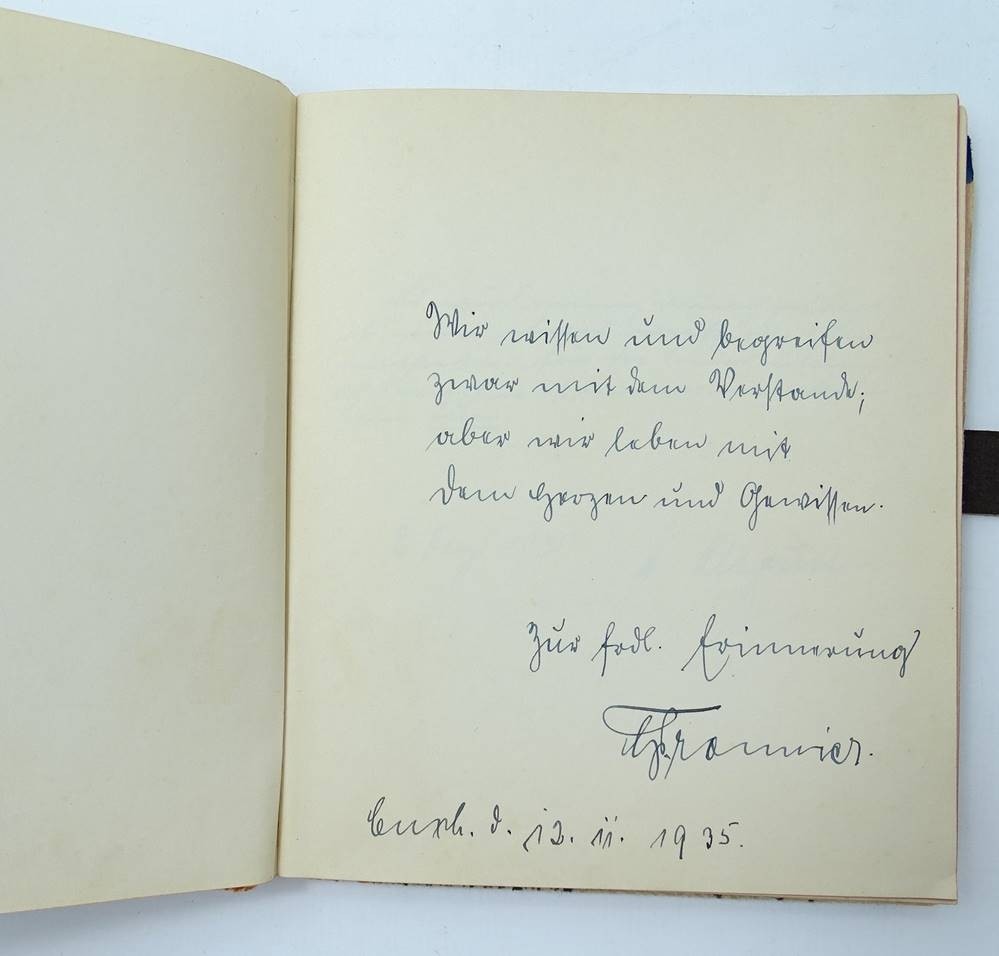 Wir wissen und begreifen
zwar mit dem Verstande;
aber wir leben mit
dem Herzen und Gewissen.
Zur frdl. Erinnerung
Cuxh. d. 12. 11. 1935.